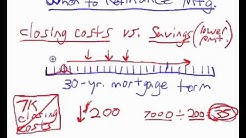 When to Refinance Mtg.
closing costs vs. Savings (lower pmt)
30-yr. mortgage term
7K
closing
costs
↓$200
7000 ÷ 200 = 35